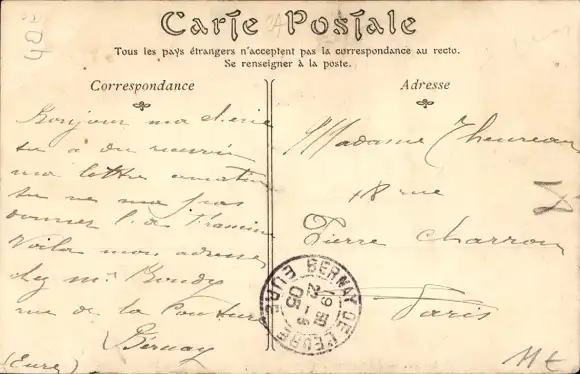 Carte Postale
Tous les pays étrangers n'acceptent pas la correspondance au recto.
Se renseigner à la poste.
Correspondance
Bonjour ma cherie
tu a du recevoir
ma lettre
tu ne ma pas
donner l. de Francine
Voila mon adresse
chez Mr
rue de la
Bernay
(Eure)
Adresse
Madame Theureau
18 rue
Pierre Charron
Paris
BERNAY DE L'EURE
19 30
22 - 5
05
EURE